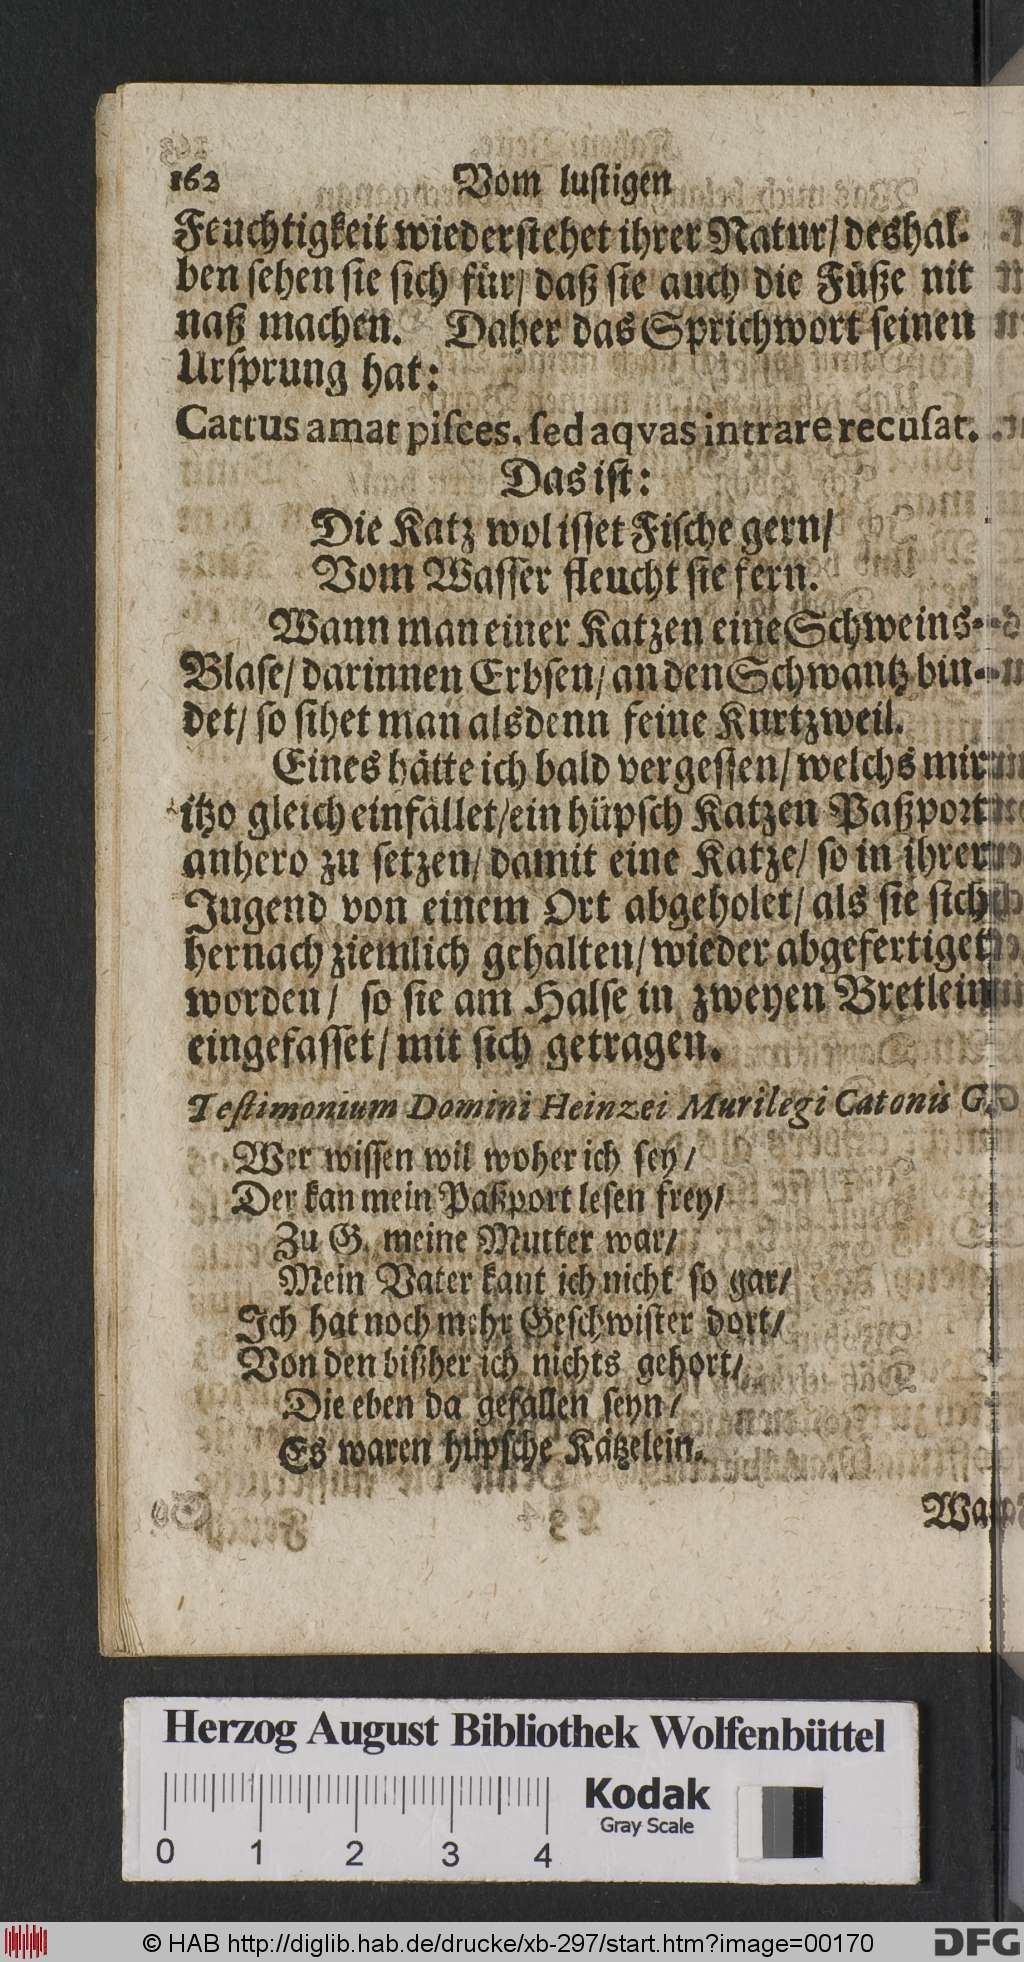 162 Vom lustigen
Feuchtigkeit wiederstehet ihrer Natur/ deshal-
ben sehen sie sich für/ daß sie auch die Füße nit
naß machen. Daher das Sprichwort seinen
Ursprung hat:
Cattus amat pisces, sed aqvas intrare recusat.
Das ist:
Die Katz wol isset Fische gern/
Vom Wasser fleucht sie fern.
Wann man einer Katzen eine Schweins-
Blase/ darinnen Erbsen/ an den Schwantz bin-
det/ so sihet man alsdenn feine Kurtzweil.
Eines hätte ich bald vergessen/ welchs mir
itzo gleich einfället/ ein hüpsch Katzen Paßport
anhero zu setzen/ damit eine Katze/ so in ihrer
Jugend von einem Ort abgeholet/ als sie sich
hernach ziemlich gehalten/ wieder abgefertiget
worden/ so sie am Halse in zweyen Bretlein
eingefasset/ mit sich getragen.
Testimonium Domini Heinzei Murilegi Catonis G.
Wer wissen wil woher ich sey/
Der kan mein Paßport lesen frey/
Zu G. meine Mutter war/
Mein Vater kant ich nicht so gar/
Ich hat noch mehr Geschwister dort/
Von den bißher ich nichts gehort/
Die eben da gefallen seyn/
Es waren hüpsche Kätzelein.
Herzog August Bibliothek Wolfenbüttel
0 1 2 3 4
Kodak
Gray Scale
© HAB http://diglib.hab.de/drucke/xb-297/start.htm?image=00170
DFG